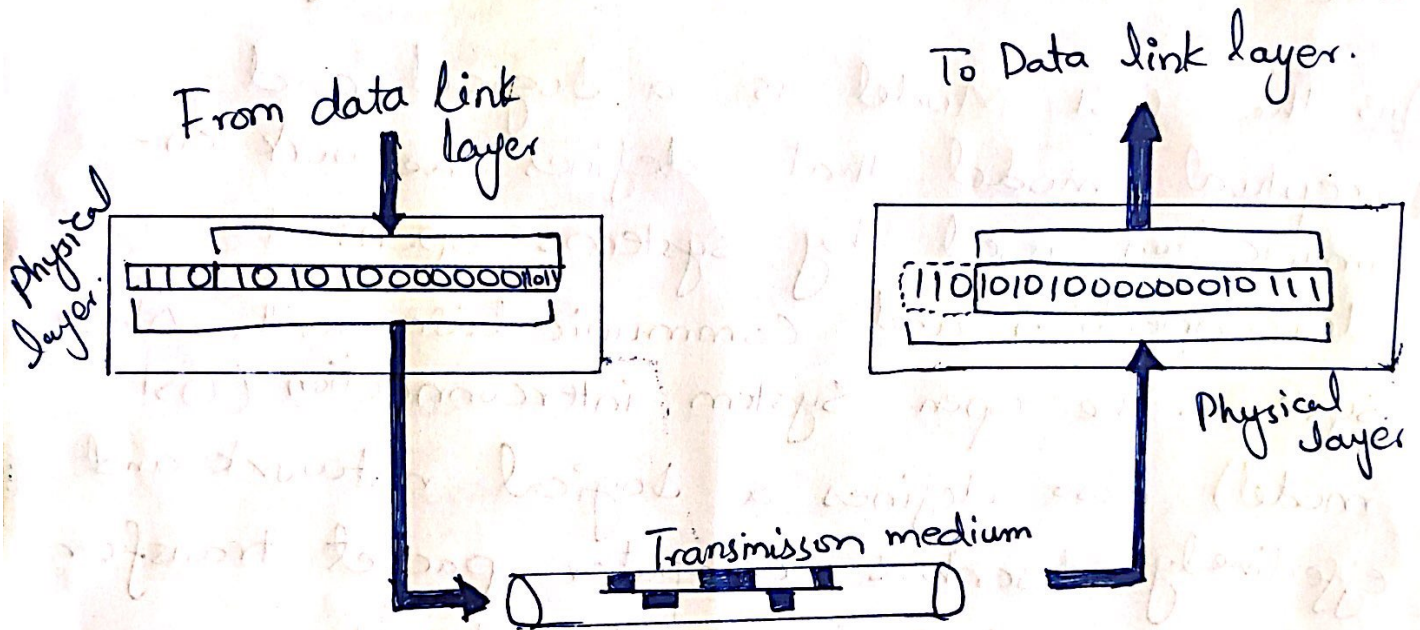 From data link
layer
To Data link layer.
Physical
layer.
110101010000000001011
110101010000000010111
Physical
layer
Transmisson medium